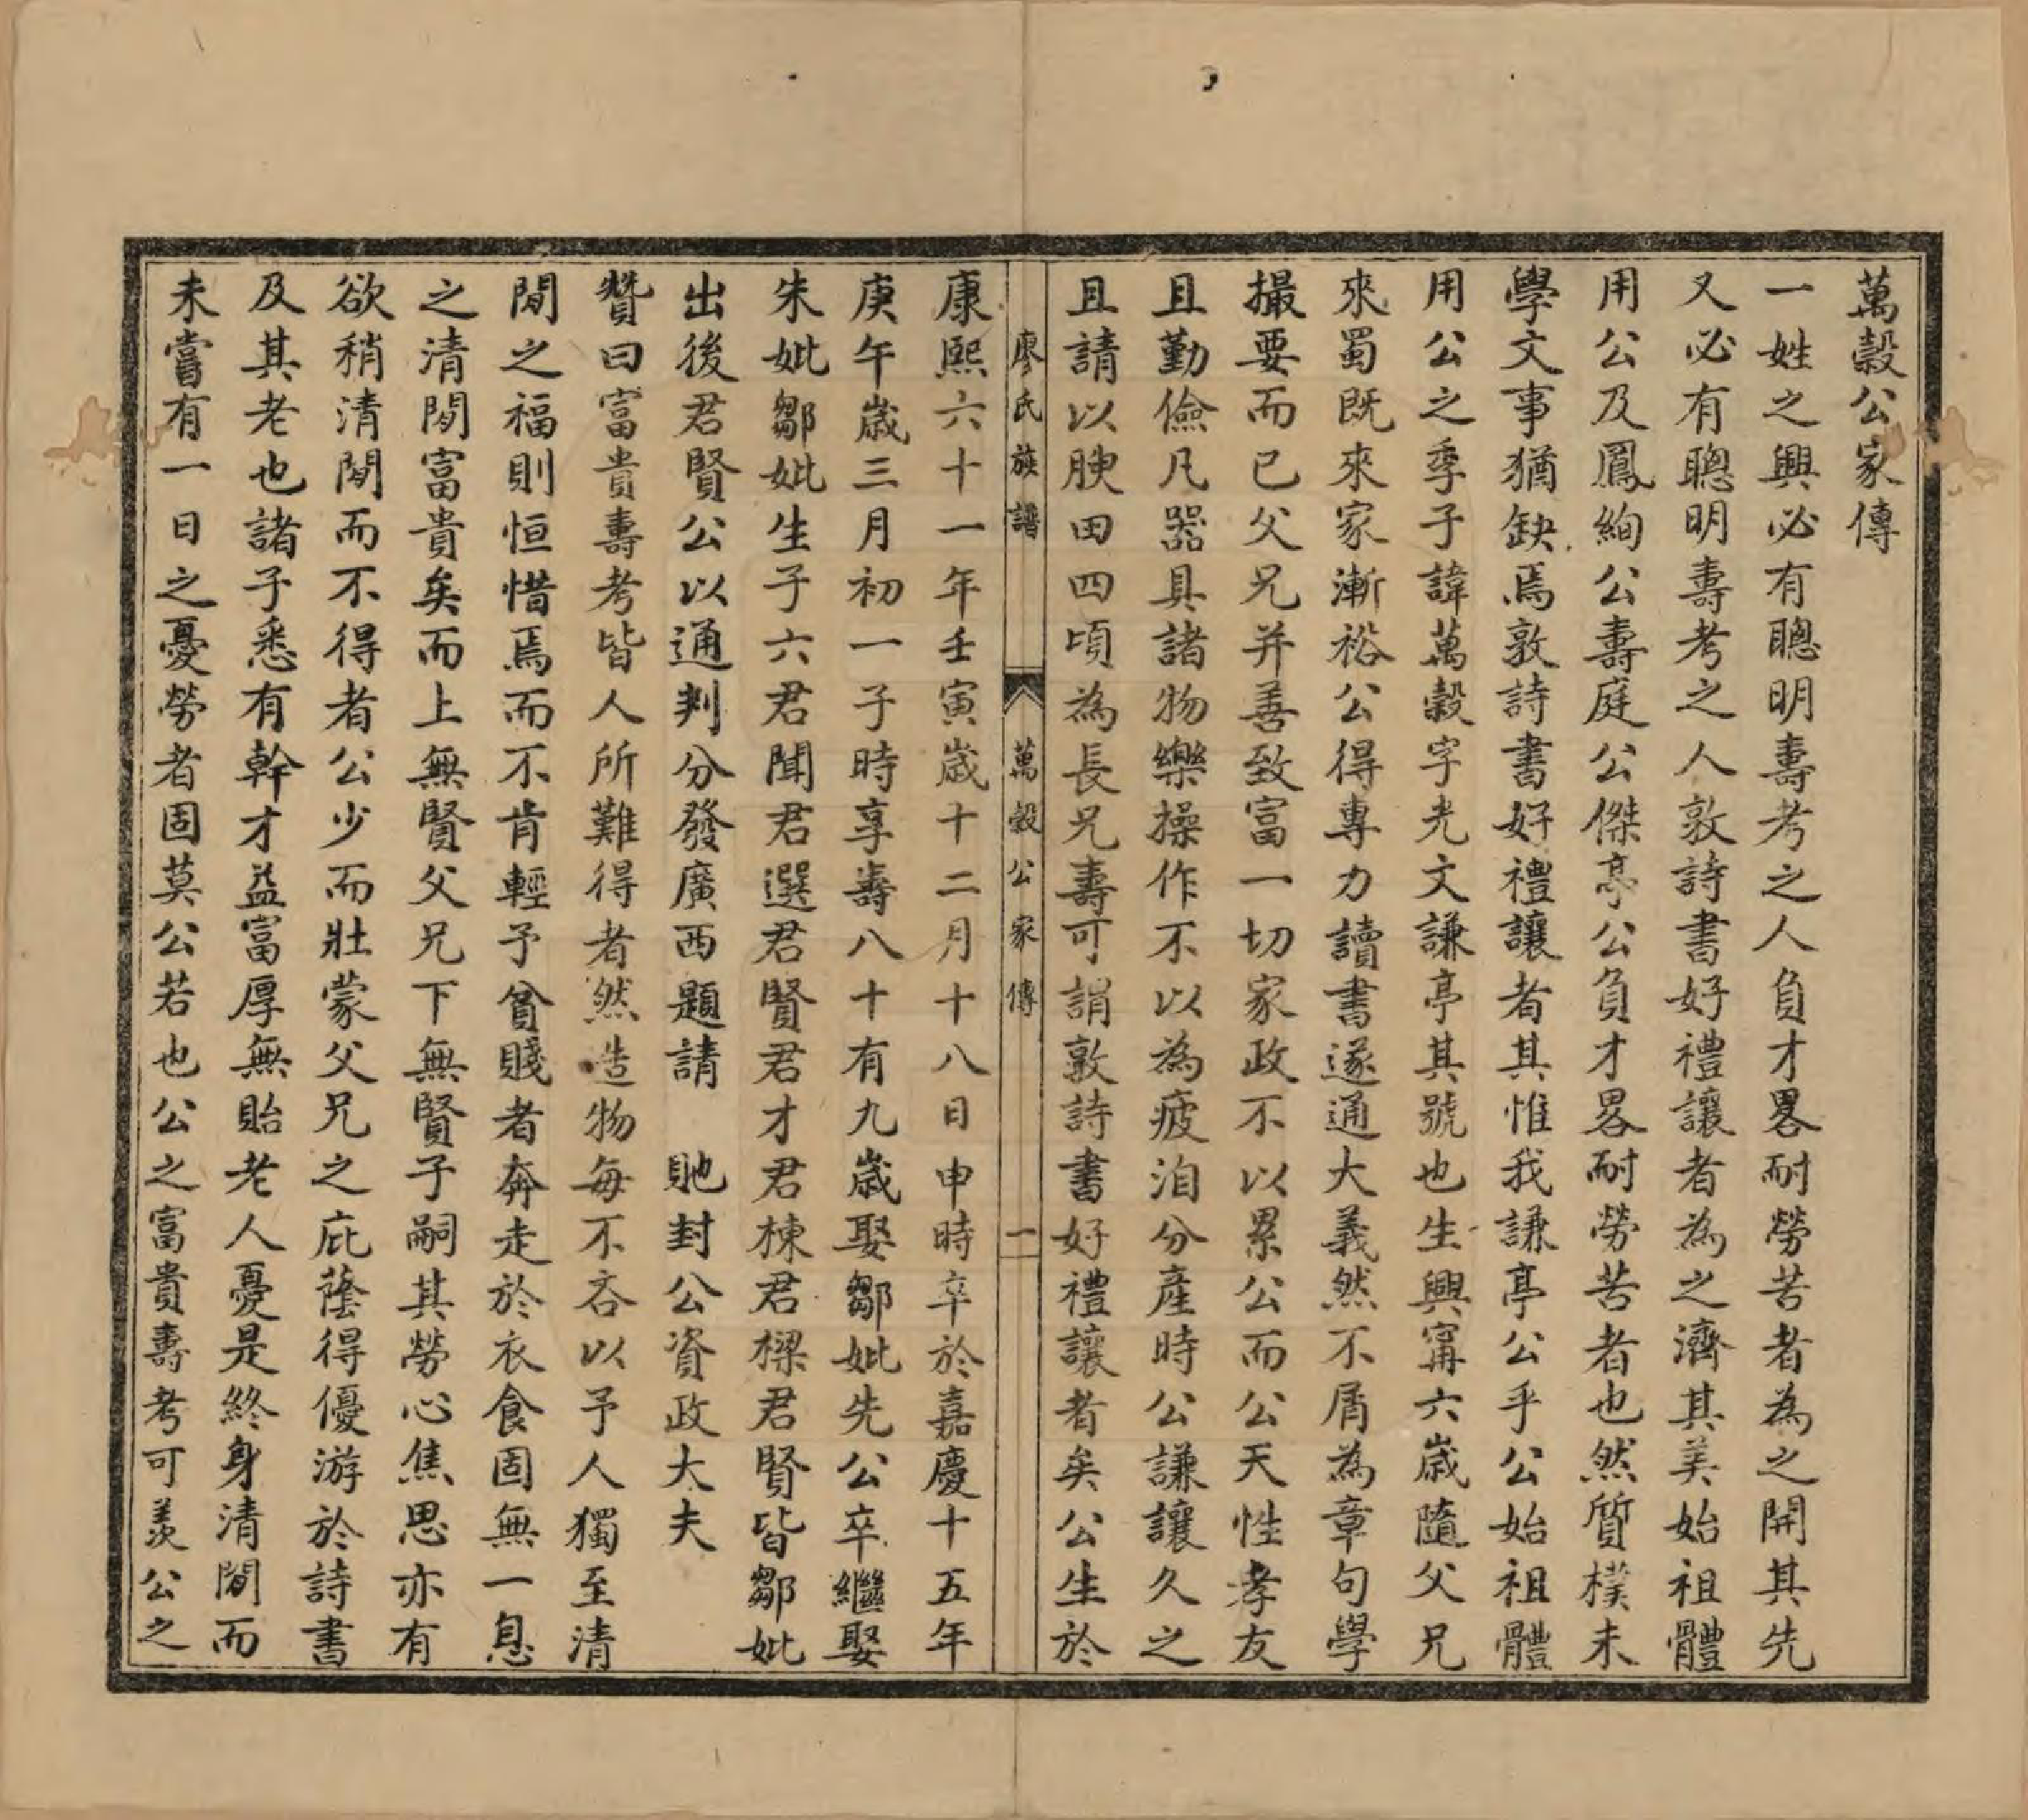 萬穀公家傳
一姓之興必有聰明壽考之人負才畧耐勞苦者為之開其先
又必有聰明壽考之人敦詩書好禮讓者為之濟其美始祖體
用公及鳳絢公壽庭公傑亭公負才畧耐勞苦者也然質樸未
學文事猶缺焉敦詩書好禮讓者其惟我謙亭公乎公始祖體
用公之季子諱萬穀字光文謙亭其號也生興甯六歲隨父兄
來蜀既來家漸裕公得專力讀書遂通大義然不屑為章句學
撮要而已父兄并善致富一切家政不以累公而公天性孝友
且勤儉凡器具諸物樂操作不以為疲洎分產時公謙讓久之
且請以腴田四頃為長兄壽可謂敦詩書好禮讓者矣公生於
廖氏族譜 萬穀公家傳 一
康熙六十一年壬寅歲十二月十八日申時卒於嘉慶十五年
庚午歲三月初一子時享壽八十有九歲娶鄒妣先公卒繼娶
朱妣鄒妣生子六君聞君選君賢君才君棟君樑君賢皆鄒妣
出後君賢公以通判分發廣西題請 貤封公資政大夫
贊曰富貴壽考皆人所難得者然造物每不吝以予人獨至清
閒之福則恒惜焉而不肯輕予貧賤者奔走於衣食固無一息
之清閒富貴矣而上無賢父兄下無賢子嗣其勞心焦思亦有
欲稍清閒而不得者公少而壯蒙父兄之庇蔭得優游於詩書
及其老也諸子悉有幹才益富厚無貽老人憂是終身清閒而
未嘗有一日之憂勞者固莫公若也公之富貴壽考可羨公之